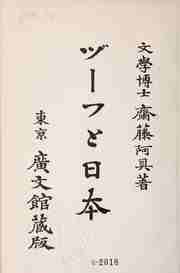 文學博士 齋藤阿具著
ヅーフと日本
東京 廣文館蔵版
6-2018